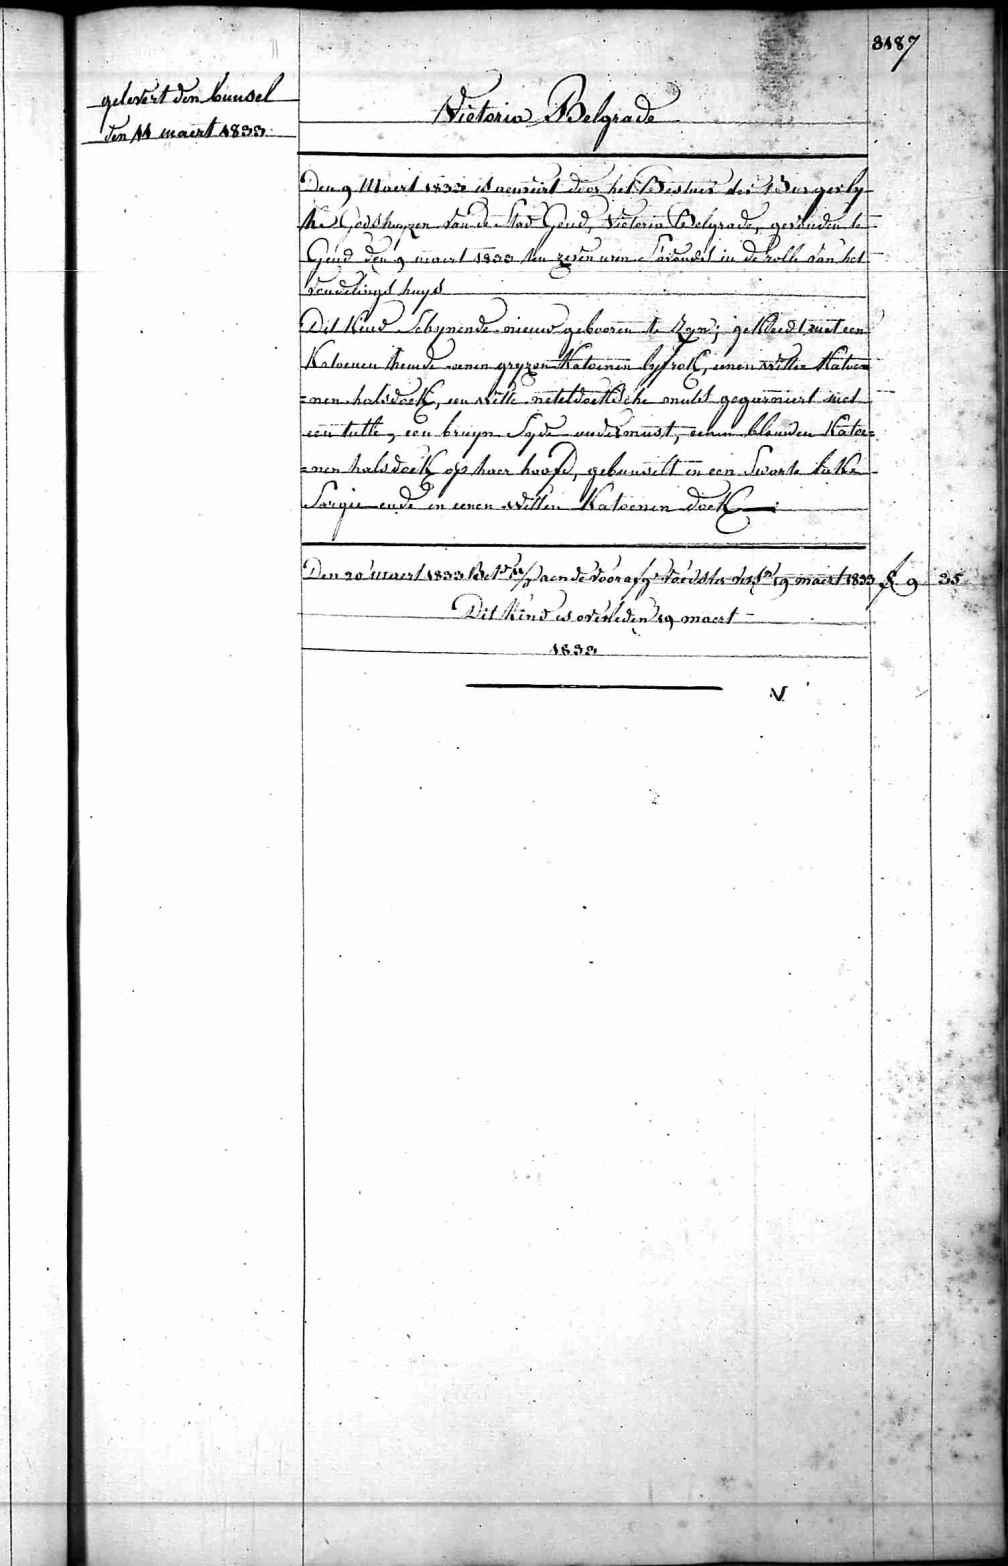 3187
gelevert den bunsel
den 11 maert 1833
Victoria Belgrade
Den 9 Maert 1833 is aenveirt door het Bestuer der Burgerly-
ke Godshuyzen van de Stad Gend, Victoria Belgrade, gevonden te
Gend den 9 maert 1833 ten zeven uren s'avonds in de rolle van het
vondelings huys
Dit Kind Schynende nieuw gebooren te Zyn; gekleedt met een
Katoenen hemde eenen gryzen Katoenen lyfrok, eenen witten Katoe
=nen halsdoek, een witte neteldoeksche muts gegarniert met
een tulle, een bruyn Syde ondermuts, eenen blauwen Katoe=
=nen halsdoek op haer hoofd, gebunselt in een Swarte bake
Sargie ende in eenen witten Katoenen doek
Den 20 maert 1833 aen de voorafg voedster 19 maert 1833 £ 9 35
Dit Kind is overleden 19 maert
1833
V